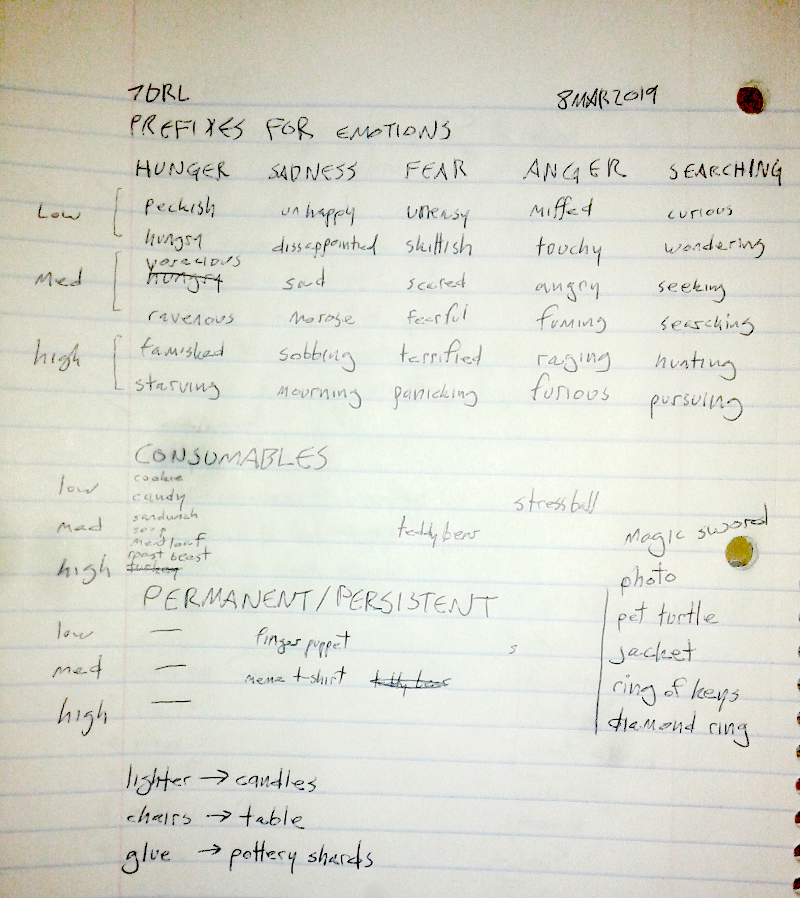 7DRL 8MAR2019
PREFIXES FOR EMOTIONS
HUNGER SADNESS FEAR ANGER SEARCHING
Low peckish unhappy uneasy miffed curious
hungry dissappointed skittish touchy wondering
voracious
med hungry sad scared angry seeking
ravenous morose fearful fuming searching
high famished sobbing terrified raging hunting
starving mourning panicking furious pursuing
CONSUMABLES
low cookie
candy stressball
sandwich
med soup teddy bear magic sword
meatloaf
high roast beast
turkey photo
PERMANENT/PERSISTENT pet turtle
low — finger puppet s jacket
med — meme t-shirt teddy bear ring of keys
high — diamond ring
lighter → candles
chairs → table
glue → pottery shards